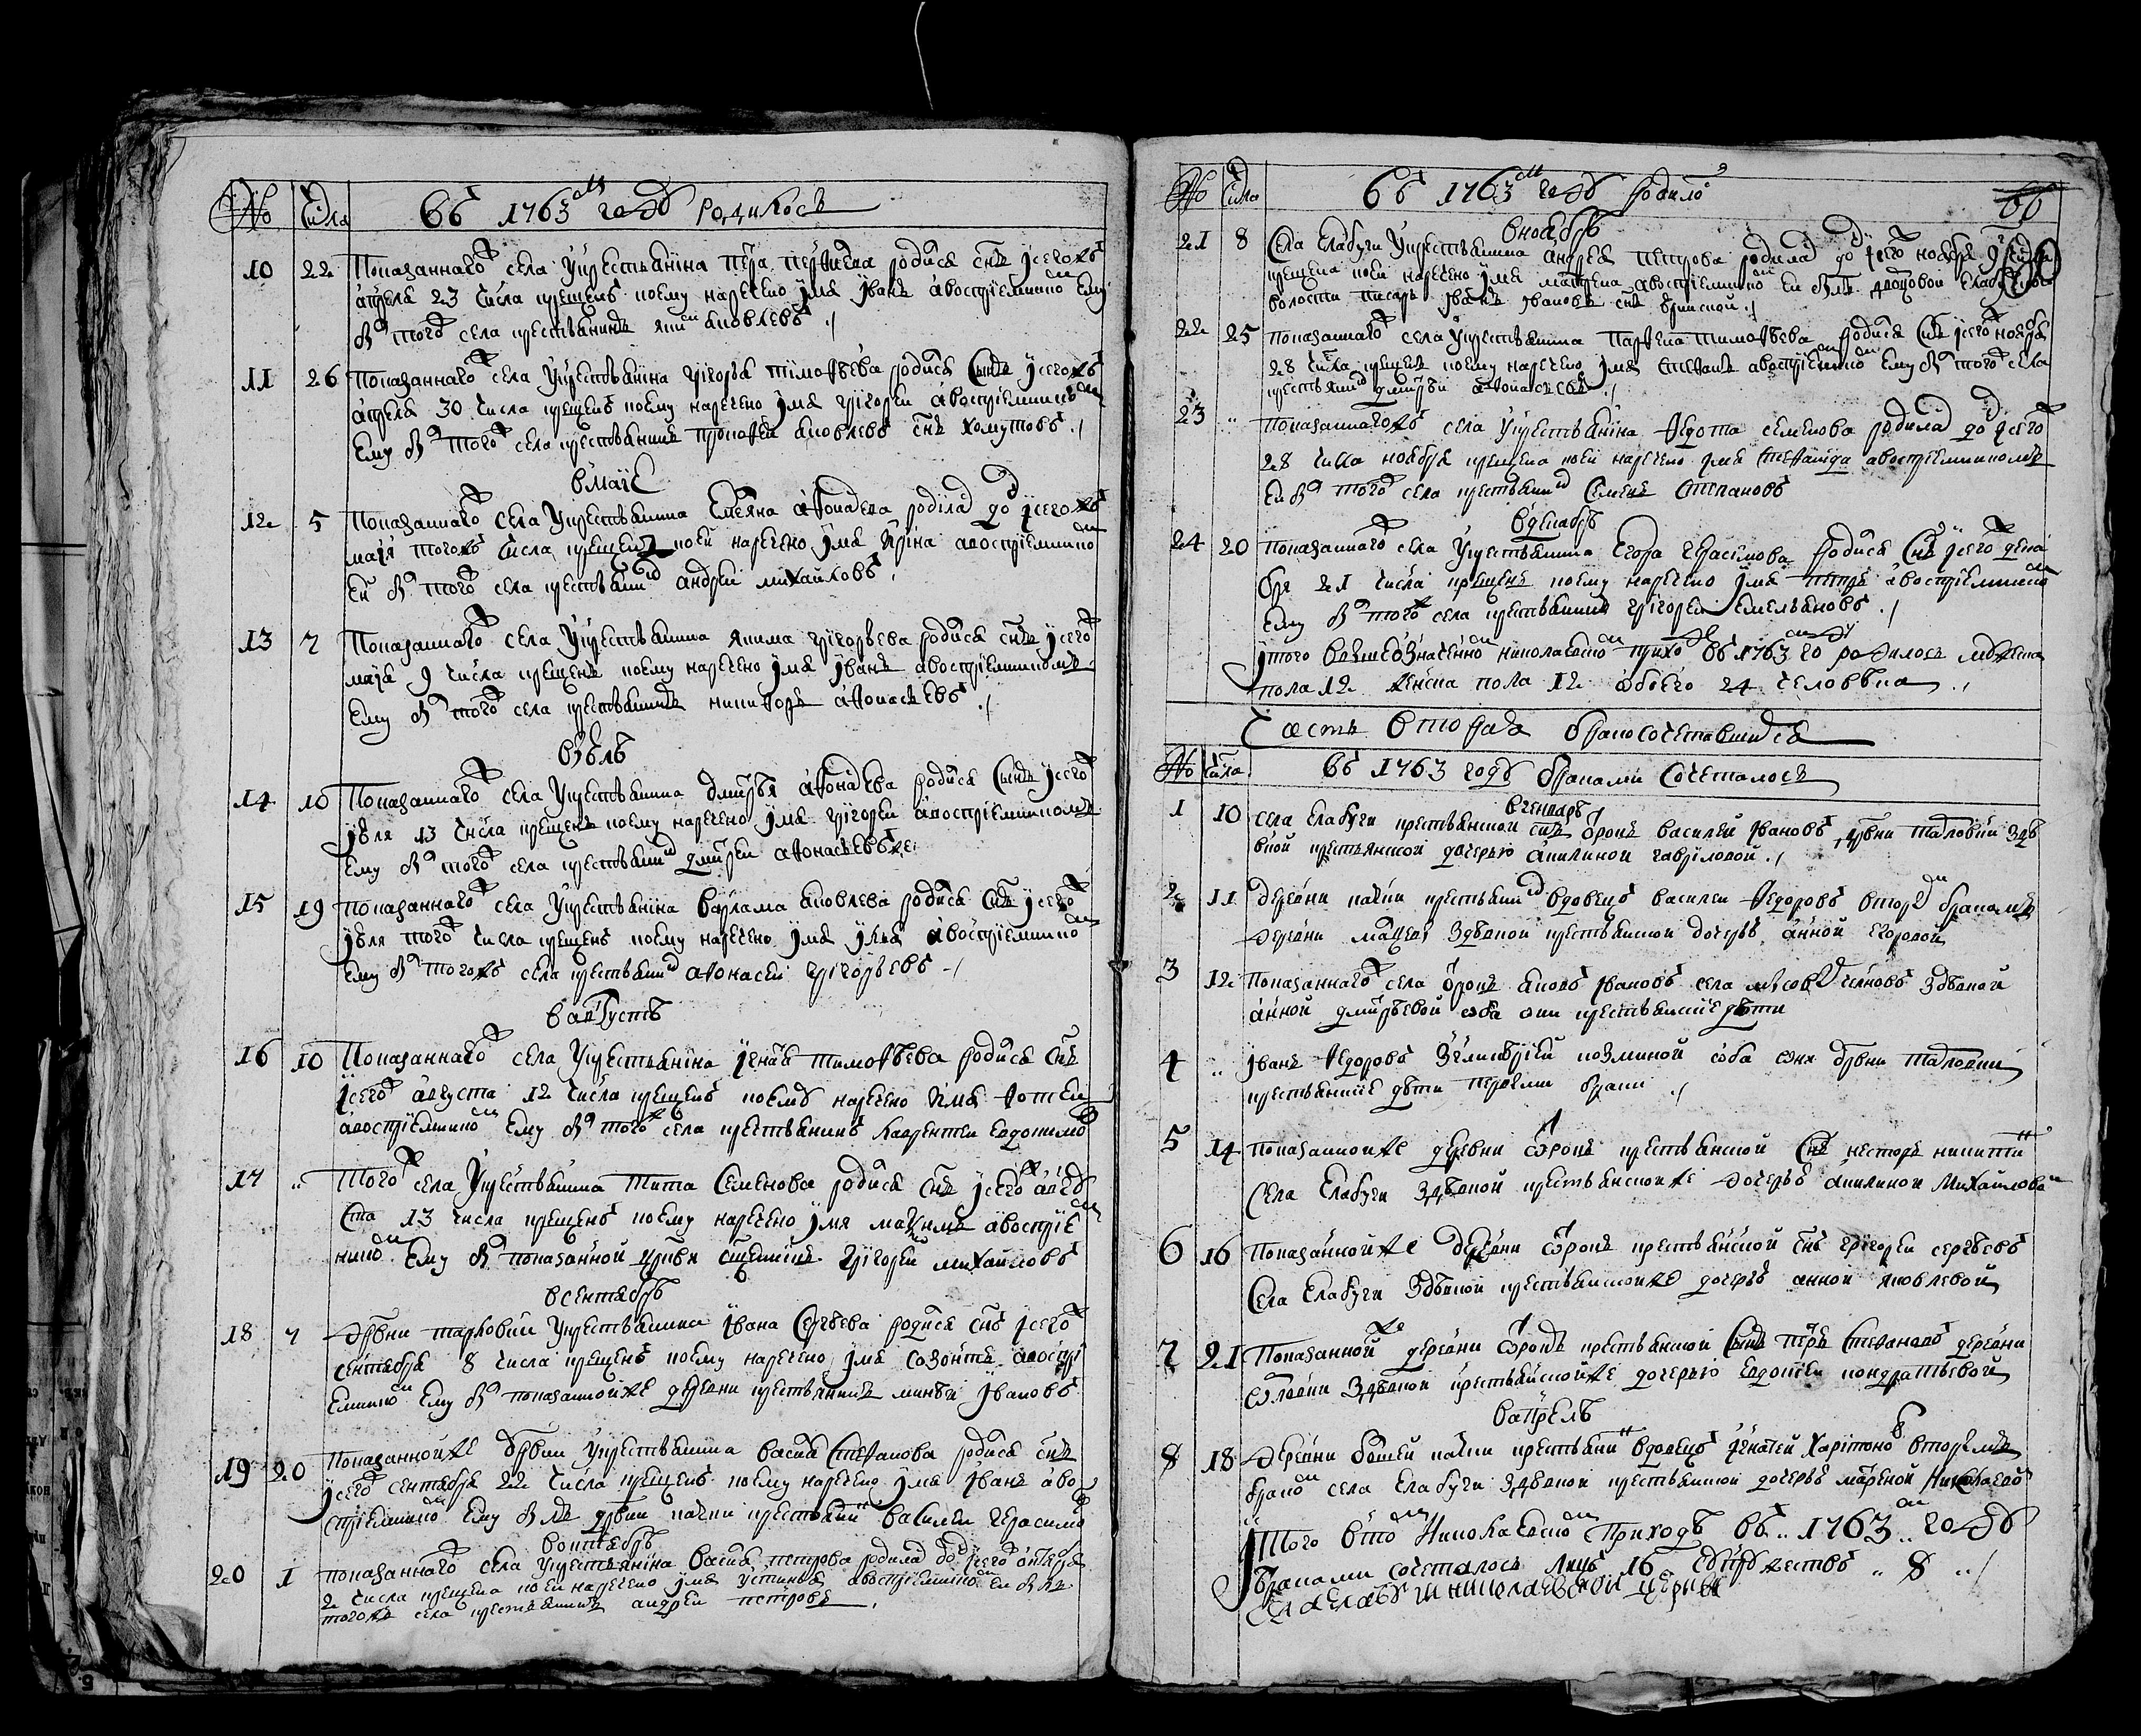 № Числа Въ 1763м годѣ родилось
10 22 Показаннаго села у крестьянина Петра родися снъ у сегожъ
апреля 23 числа крещенъ коему наречено имя Иванъ а воспрiемникомъ ему
былъ того села крестьянинъ Яковлевъ
11 26 Показаннаго села у крестьянина Григорья Тимофѣева родися сынъ у сегожъ
апреля 30 числа крещенъ коему наречено имя Григореи а воспрiемникомъ
ему былъ того села крестьянинъ Прокофеи Яковлевъ снъ Хомутовъ
в маiе
12 5 Показаннаго села у крестьянина Емеляна родила дочь у сегожъ
маiя тогожъ числа крещена коеи наречено имя Ирина а воспрiемникомъ
еи былъ того села крестьянинъ Андреи Михаиловъ
13 7 Показаннаго села у крестьянина Якима Григорьева родися снъ у сего
маiя 9 числа крещенъ коему наречено имя Иванъ а воспрiемникомъ
ему былъ того села крестьянинъ Никифоръ Афонасьевъ
в iюлѣ
14 10 Показаннаго села у крестьянина Дмитрѣя родися сынъ у сего
iюля 13 числа крещенъ коему наречено имя Григореи а воспрiемникомъ
ему былъ того села крестьянинъ Дмитреи Афонасьевъ
15 19 Показаннаго села у крестьянина Варлама Яковлева родися снъ у сего
iюля того числа крещенъ коему наречено имя Илья а воспрiемникомъ
ему былъ тогожъ села крестьянинъ Афонасеи Григорьевъ
в августѣ
16 10 Показаннаго села у крестьянина Игнатья Тимофѣева родися снъ
у сего августа 12 числа крещенъ коему наречено имя Фотеи
а воспрiемникомъ ему былъ того села крестьянинъ Лаврентеи Евдокимовъ
17 " Того села у крестьянина Тита Семенова родися снъ у сего авгу
ста 13 числа крещенъ коему наречено имя Максимъ а воспрiем
никомъ ему былъ показанной церкви Григореи Михаиловъ
в сентябрѣ
18 7 Дрвни Тарловки у крестьянина Ивана Сергѣева родися снъ у сего
сентября 8 числа крещенъ коему наречено имя Созонтъ а воспрi
емникомъ ему былъ показаннойже деревни крестьянинъ Минѣи Ивановъ
19 20 Показаннойже дрвни у крестьянина Васья Стефанова родися снъ
у сего сентября 22 числа крещенъ коему наречено имя Иванъ а во
спрiемникомъ ему былъ дрвни Качки крестьянинъ Василеи Герасимовъ
в октябрѣ
20 1 Показаннаго села у крестьянина Васья Петрова родила дочь у сего октября
2 числа крещена коеи наречено имя Устинья а воспрiемникомъ еи былъ
тогожъ села крестьянинъ Андреи Петровъ
№ Числа Въ 1763м годѣ родилось
в ноябрѣ
21 8 Села Елабуги у крестьянина Андрея Петрова родила дочь у сего ноября 9 числа
крещена коеи наречено имя Матрена а воспрiемникомъ еи былъ дворцовой Елабужской
волости писарь Иванъ Ивановъ снъ
22 25 Показаннаго села у крестьянина Парфена Тимофѣева родися снъ у сего ноября
28 числа крещенъ коему наречено имя Стефанъ а воспрiемникомъ ему былъ того села
крестьянинъ Дмитреи Афонасьевъ
23 " Показаннагожъ села у крестьянина Федота Семенова родила дочь у сего
28 числа ноября крещена коеи наречено имя Стефанида а воспрiемникомъ
еи былъ того села крестьянинъ Семенъ Степановъ
в декабрѣ
24 20 Показаннаго села у крестьянина Егора Герасимова родися снъ у сего дека
бря 21 числа крещенъ коему наречено имя Петръ а воспрiемникомъ
ему былъ того села крестьянинъ Григореи Емельяновъ
Итого въ вышеозначенномъ николаевскомъ приходѣ въ 1763м году родилось мужеска
пола 12 женска пола 12 обоего 24 человѣка
Часть вторая о бракосочетавшихся
№ Числа Въ 1763 годѣ браками сочеталось
в генварѣ
1 10 Села Елабуги крестьянской снъ отрокъ Василеи Ивановъ дрвни Тарловки з дѣ
вкой крестьянской дочерью Акилиной Гавриловой
2 11 Деревни Качки крестьянинъ вдовецъ Василеи Федоровъ вторымъ бракомъ
деревни з дѣвкой крестьянской дочерью Анной Егоровой
3 12 Показаннаго села отрокъ Яковъ Ивановъ села з дѣвкой
Анной Дмитрѣевой оба они крестьянскiе дѣти
4 " Иванъ Федоровъ Козминой оба они дрвни Тарловки
крестьянскiе дѣти первымъ бракомъ
5 14 Показаннойже деревни отрокъ крестьянской снъ Несторъ Никитинъ
села Елабуги з дѣвкой крестьянскойже дочерью Акилиной Михаиловой
6 16 Показаннойже деревни отрокъ крестьянской снъ Григореи Сергѣевъ
села Елабуги з дѣвкой крестьянскойже дочерью Анной Яковлевой
7 21 Показаннойже деревни отрокъ крестьянской сынъ Петръ Стефановъ деревни
з дѣвкой крестьянскойже дочерью Евдокѣеи Кондратьевой
в апрелѣ
8 18 Деревни Качки крестьянинъ вдовецъ Игнатеи Харитоновъ вторымъ
бракомъ села Елабуги з дѣвкой крестьянской дочерью Марѳой Николаевой
Итого в томъ Николаевскомъ приходѣ въ 1763м годѣ
браками сочеталось лицъ 16 супружествъ 8
села Елабуги николаевской церкви